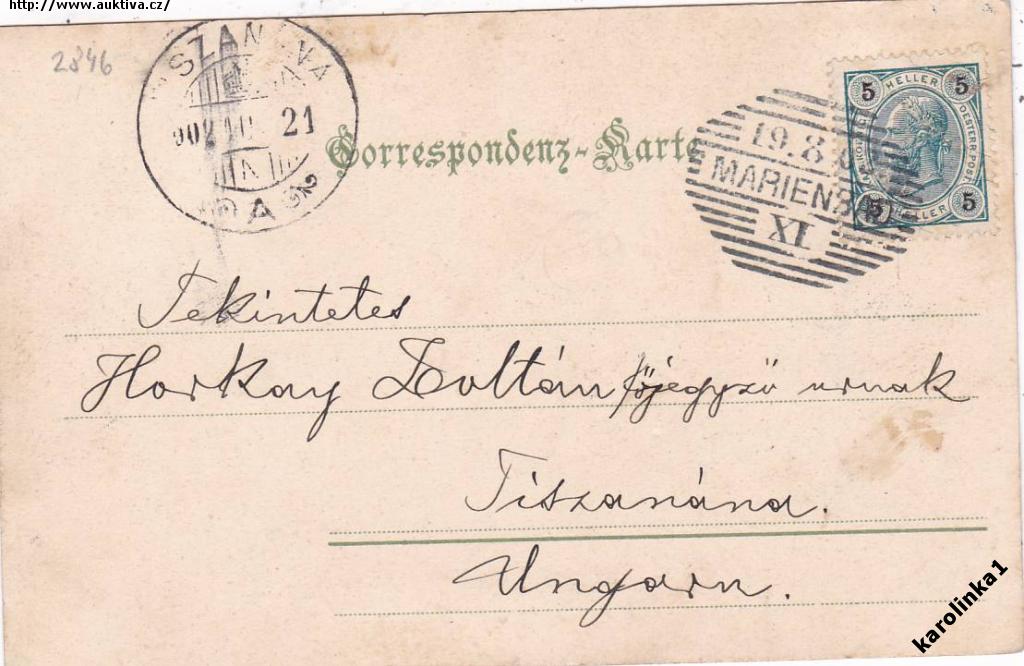 http://www.auktiva.cz/
2846
902 21
Correspondenz-Karte
19.8
MARIENBAD
XI.
5 HELLER 5
OESTERR. POST
5 HELLER 5
Tekintetes
Horkay Zoltán főjegyző urnak
Tiszanána.
Ungarn.
karolinka1